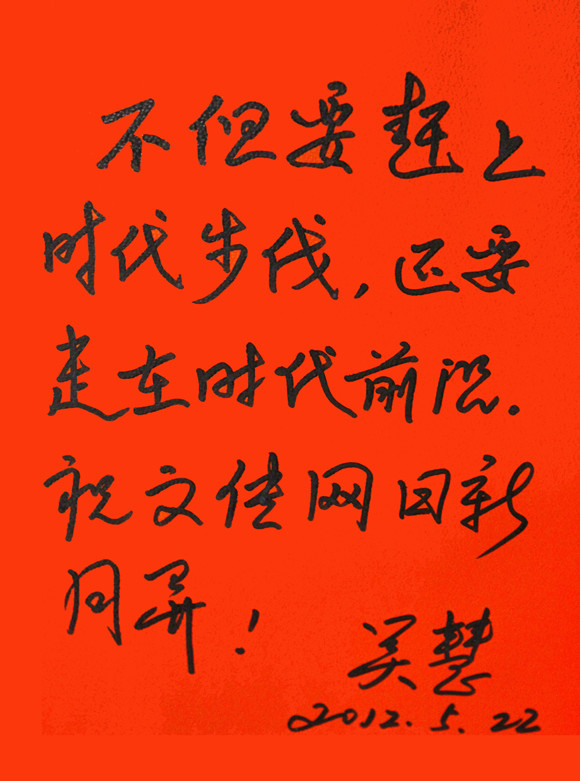 不但要赶上
时代步伐，还要
走在时代前沿.
祝文传网日新
月异！
吴慧
2012.5.22